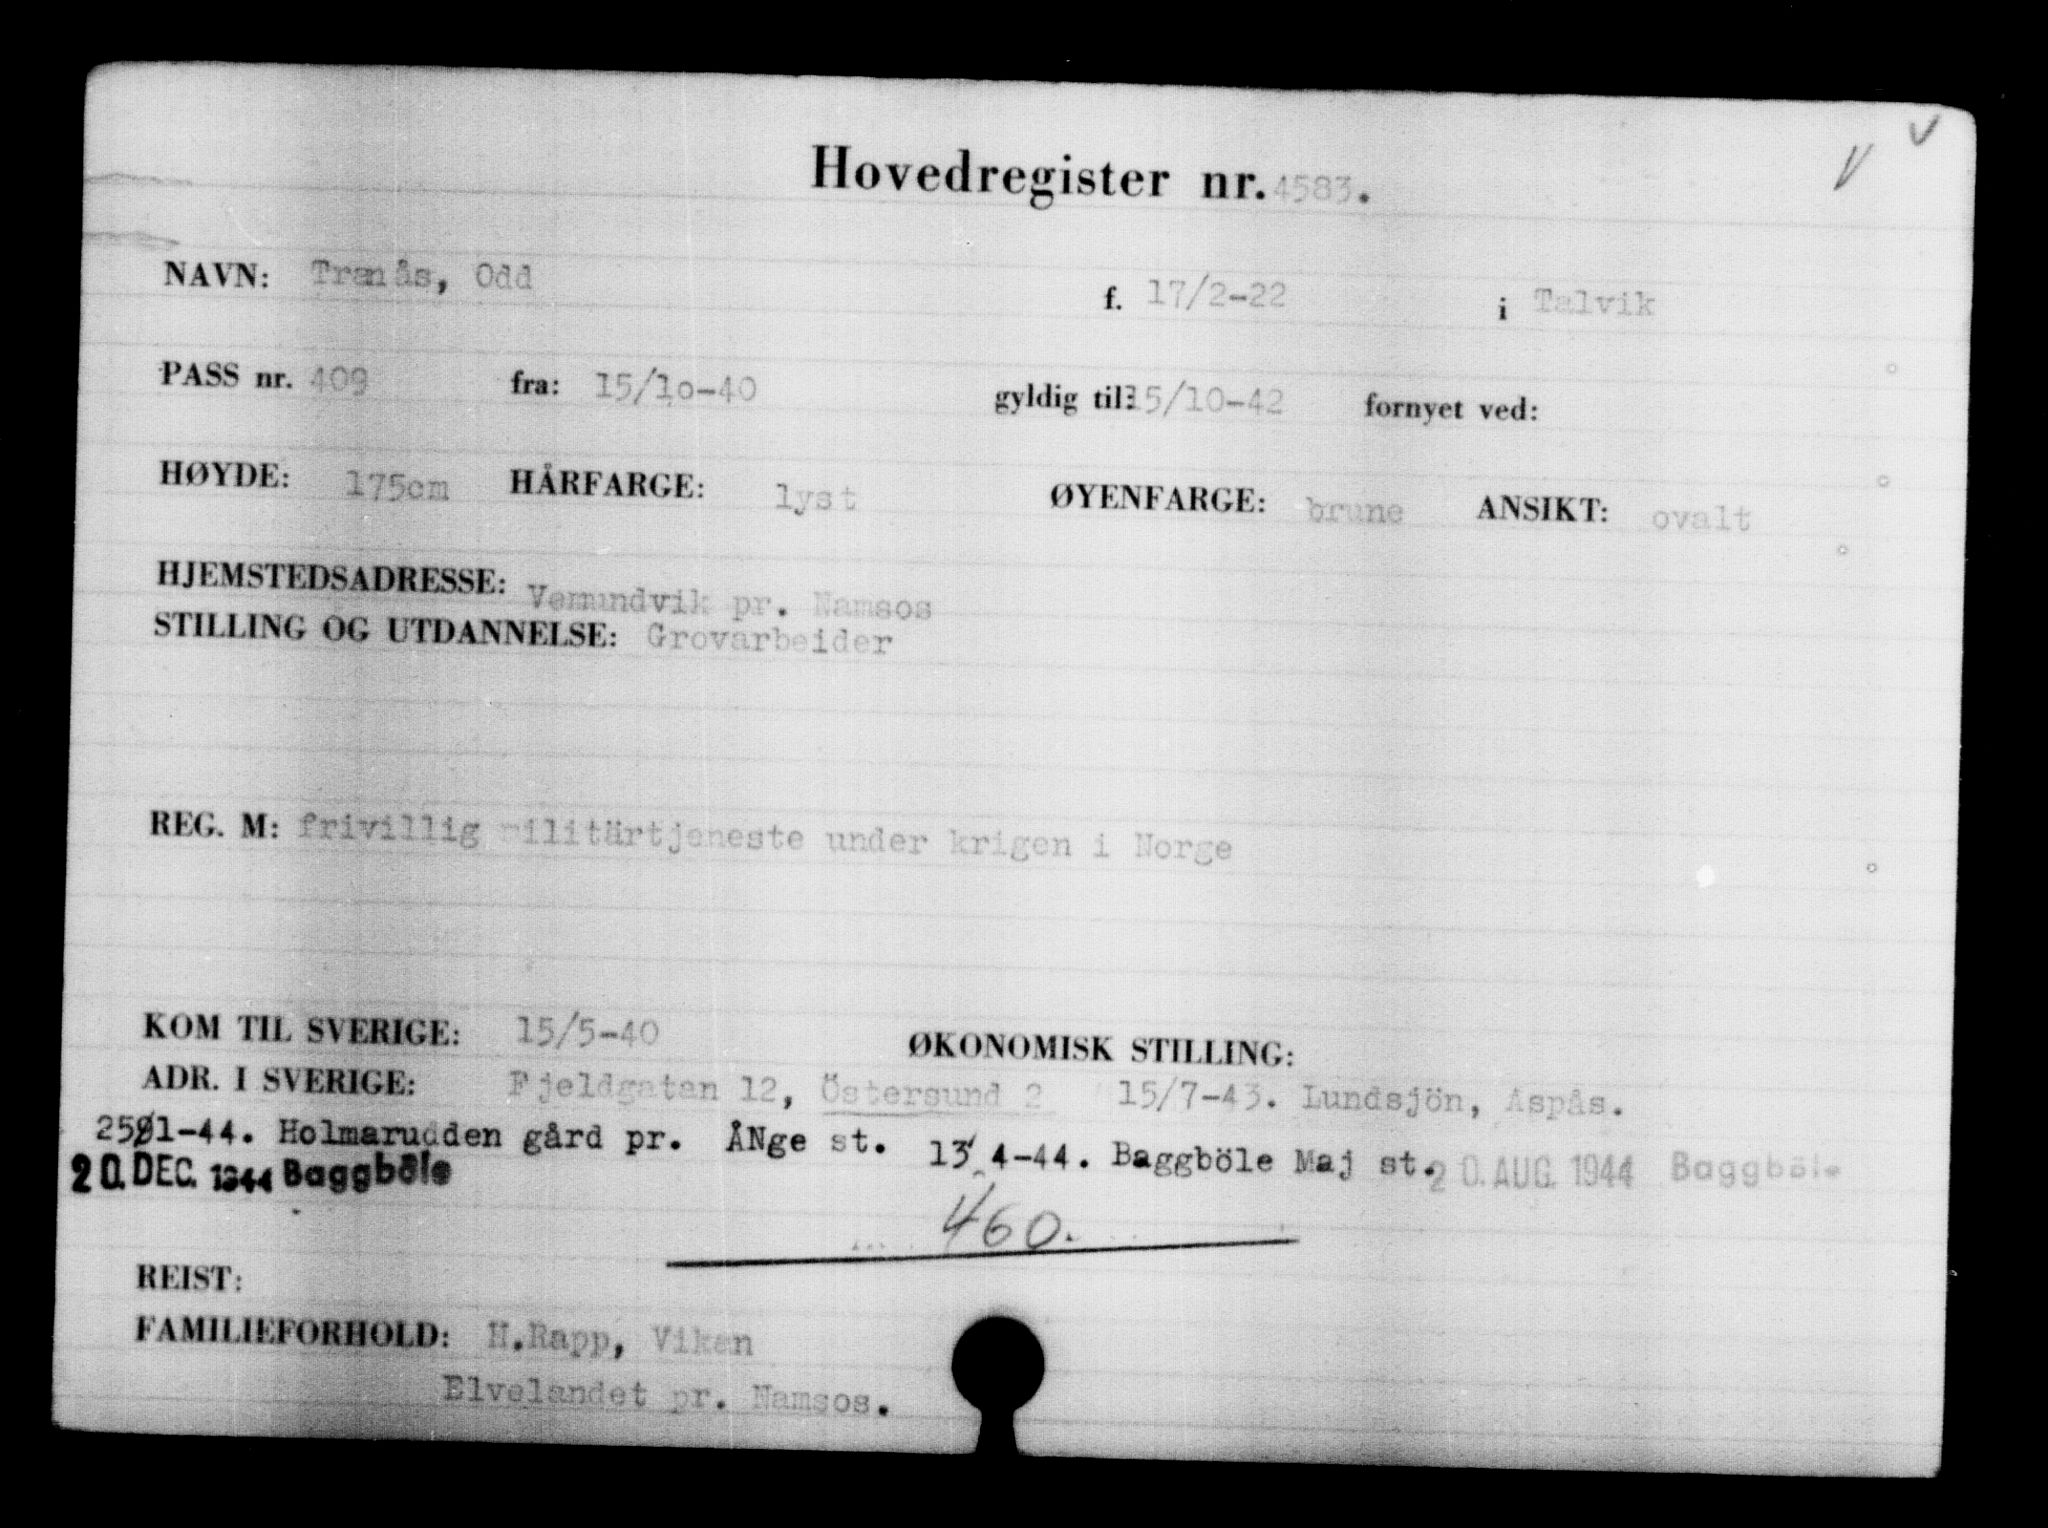 Hovedregister nr. 4583.
NAVN: Trænås, Odd f. 17/2-22 i Talvik
PASS nr. 409 fra: 15/10-40 gyldig til: 15/10-42 fornyet ved:
HØYDE: 175cm HÅRFARGE: lyst ØYENFARGE: brune ANSIKT: ovalt
HJEMSTEDSADRESSE: Vemundvik pr. Namsos
STILLING OG UTDANNELSE: Grovarbeider
REG. M: frivillig militärtjeneste under krigen i Norge
KOM TIL SVERIGE: 15/5-40 ØKONOMISK STILLING:
ADR. I SVERIGE: Fjeldgatan 12, Östersund 2 15/7-43. Lundsjön, Aspås.
25/1-44. Holmarudden gård pr. ÅNge st. 13/4-44. Baggböle Maj st. 20. AUG. 1944 Baggböle
20. DEC. 1944 Baggböle
460.
REIST:
FAMILIEFORHOLD: H.Rapp, Viken
Elvelandet pr. Namsos.